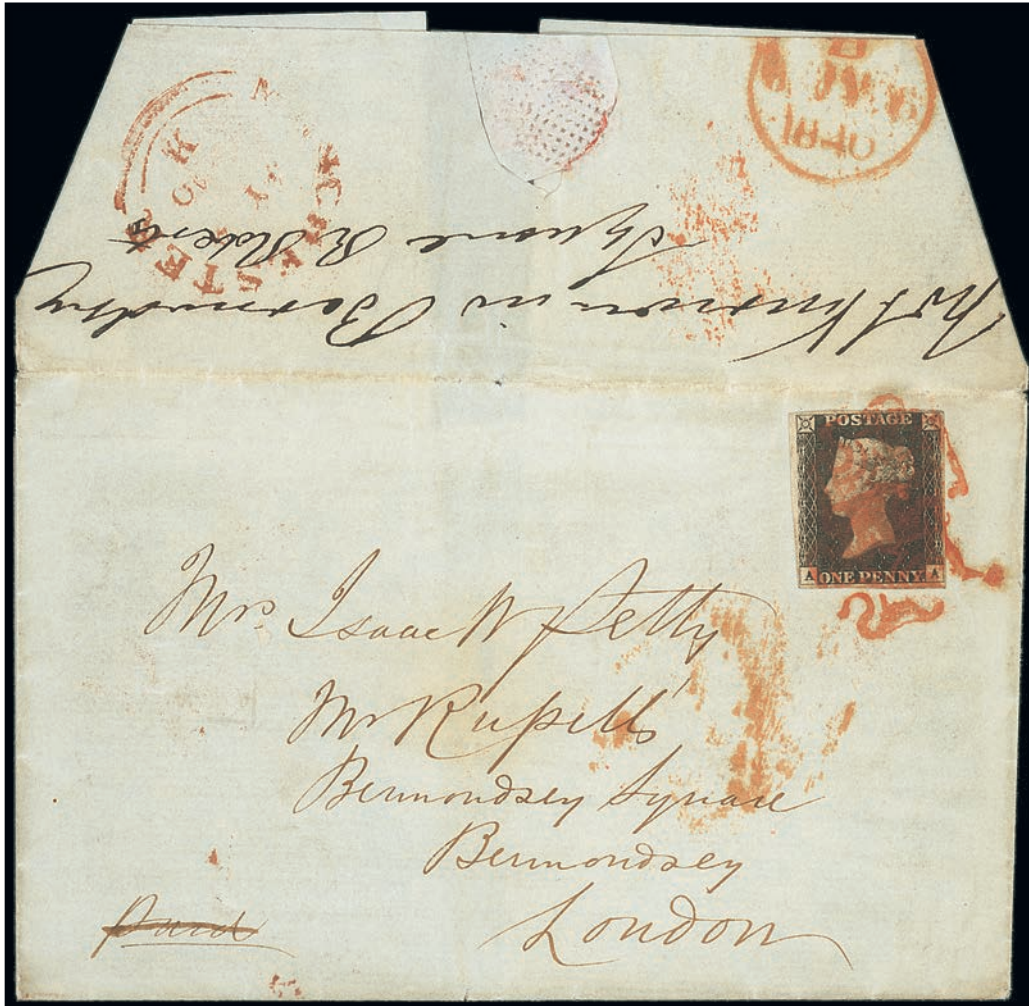 1840
Not known in Bermondsey
Square R Roberts
POSTAGE
A ONE PENNY A
Mrs. Isaac W Petty
Mr Russell's
Bermondsey Square
Bermondsey
London
Paid